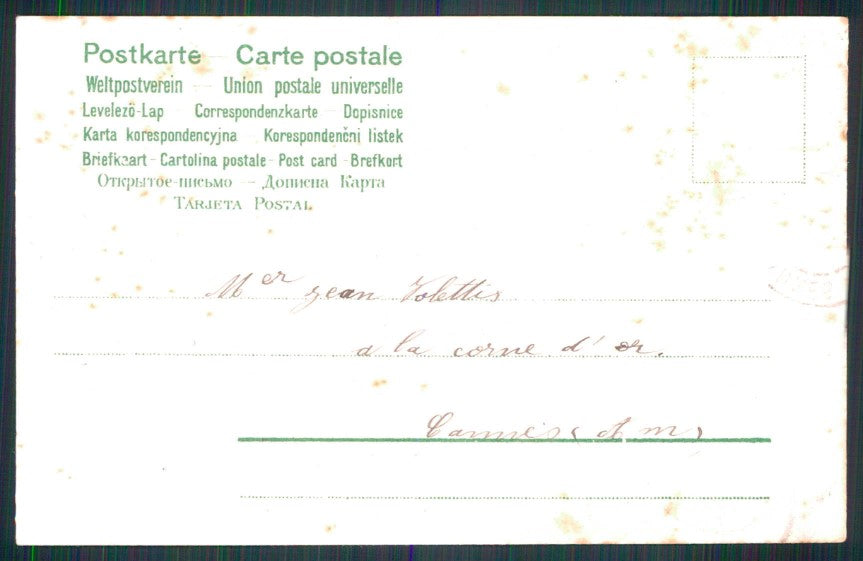 Postkarte – Carte postale
Weltpostverein – Union postale universelle
Levelező-Lap – Correspondenzkarte – Dopisnice
Karta korespondencyjna – Korespondenční listek
Briefkaart – Cartolina postale – Post card – Brefkort
Открытое-письмо — Дописна Карта
TARJETA POSTAL
Mer Jean Volettis
a la corne d'or.
Cannes (A m)